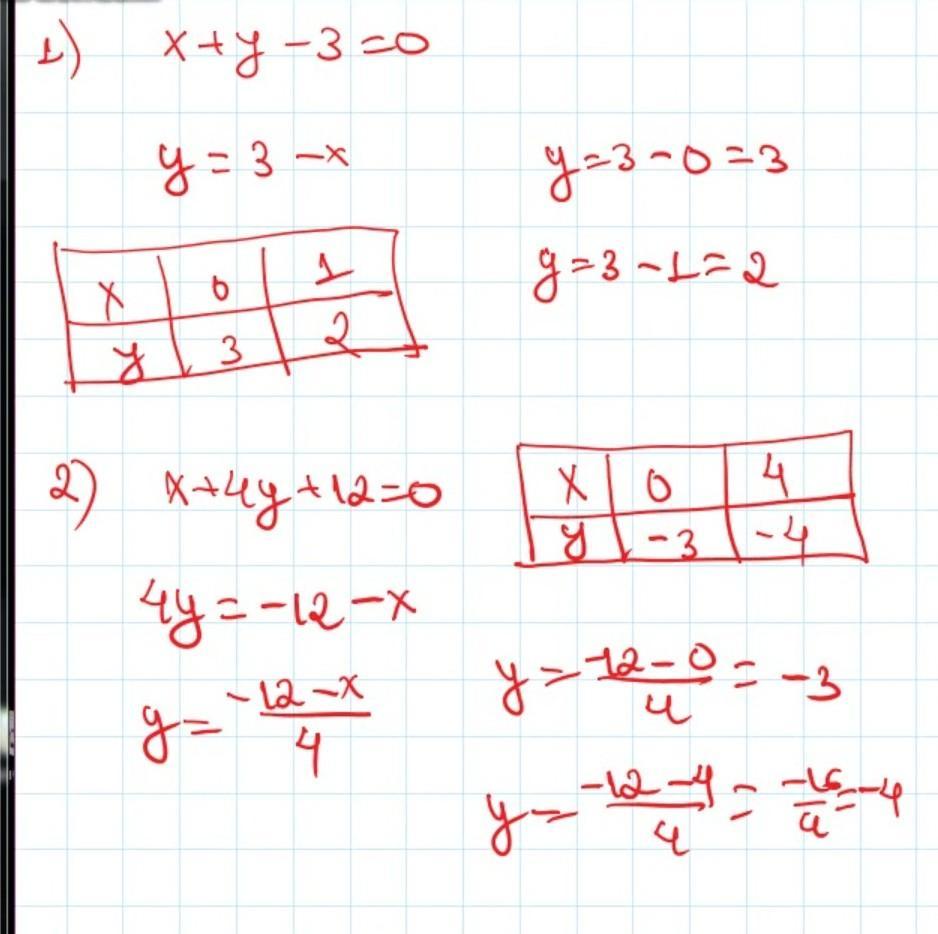 1) x+y-3=0
y=3-x
y=3-0=3
y=3-1=2
x 0 1
y 3 2
2) x+4y+12=0
4y=-12-x
y=\frac{-12-x}{4}
x 0 4
y -3 -4
y=\frac{-12-0}{4}=-3
y=\frac{-12-4}{4}=\frac{-16}{4}=-4